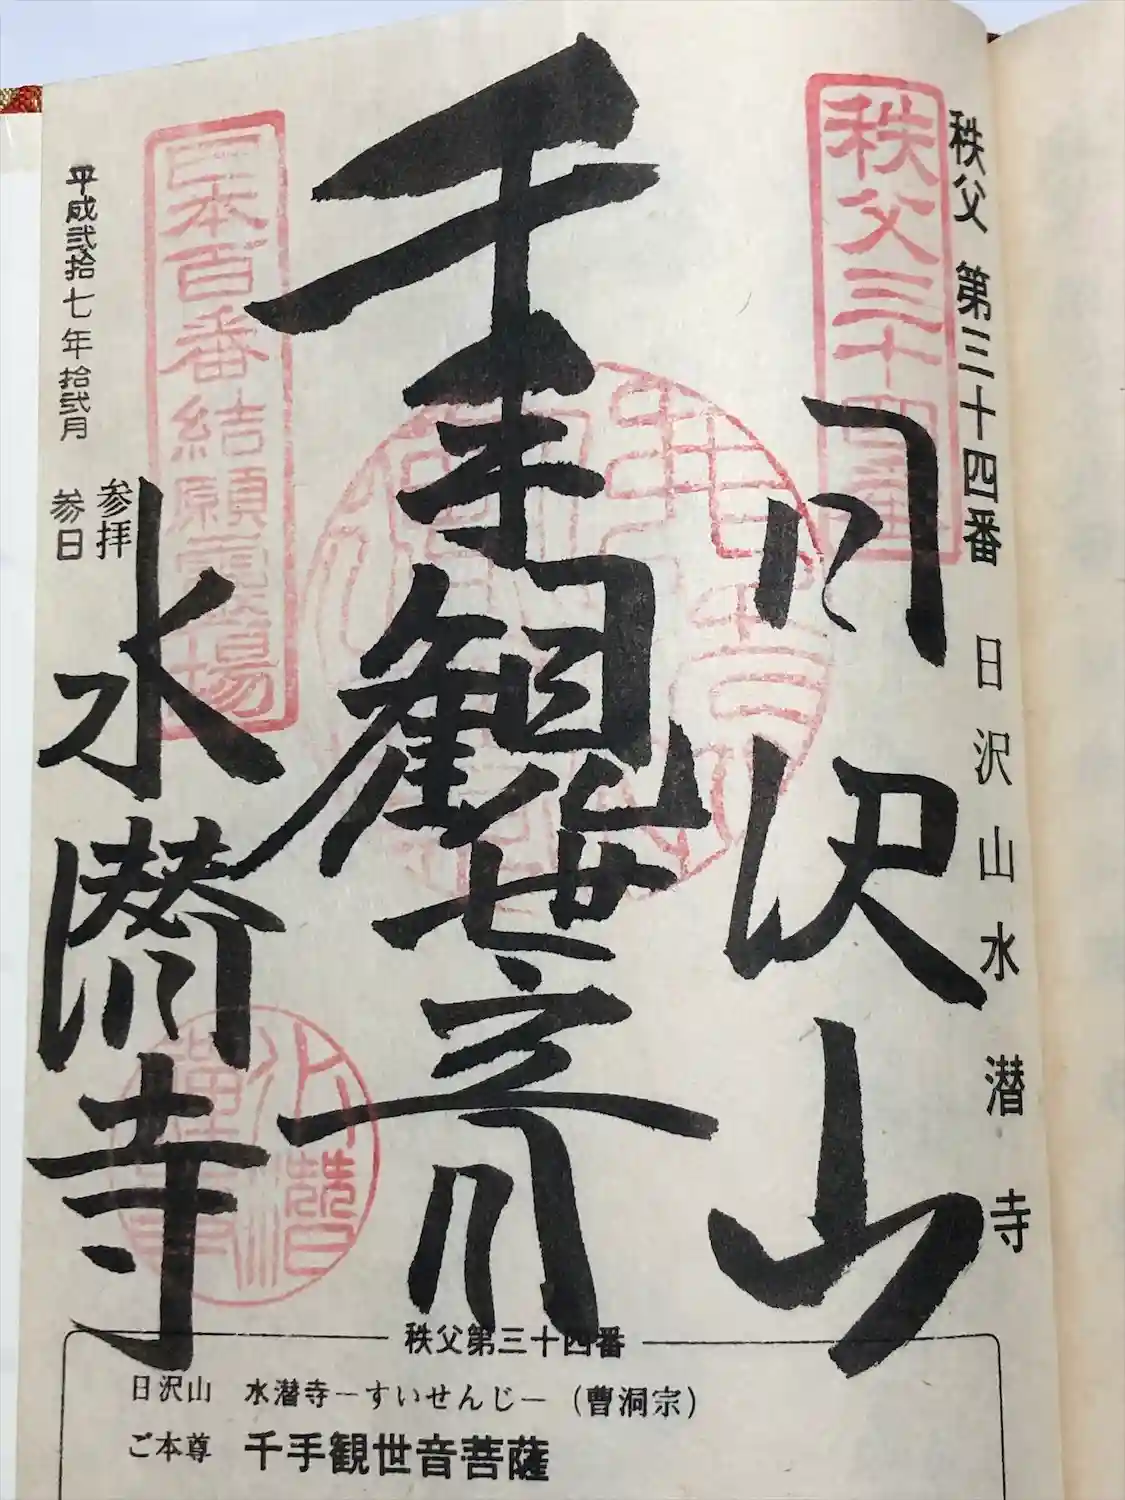 秩父 第三十四番 日沢山水潜寺
秩父三十四番
日沢山
千手観世音
日本百番結願霊場
水潜寺
参拝
平成弐拾七年拾弐月 参日
秩父第三十四番
日沢山 水潜寺−すいせんじ−(曹洞宗)
ご本尊 千手観世音菩薩